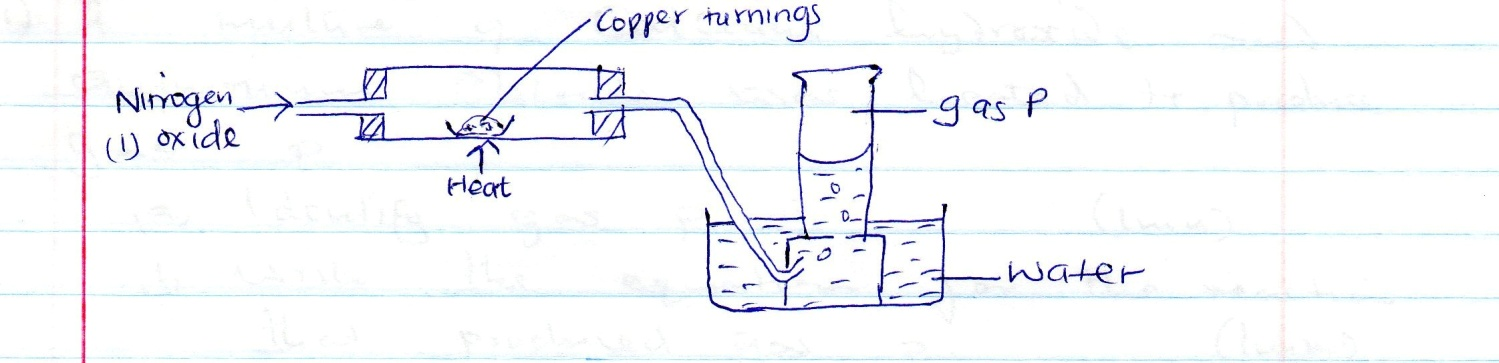 Copper turnings
Nitrogen
(I) oxide
Heat
gas P
Water